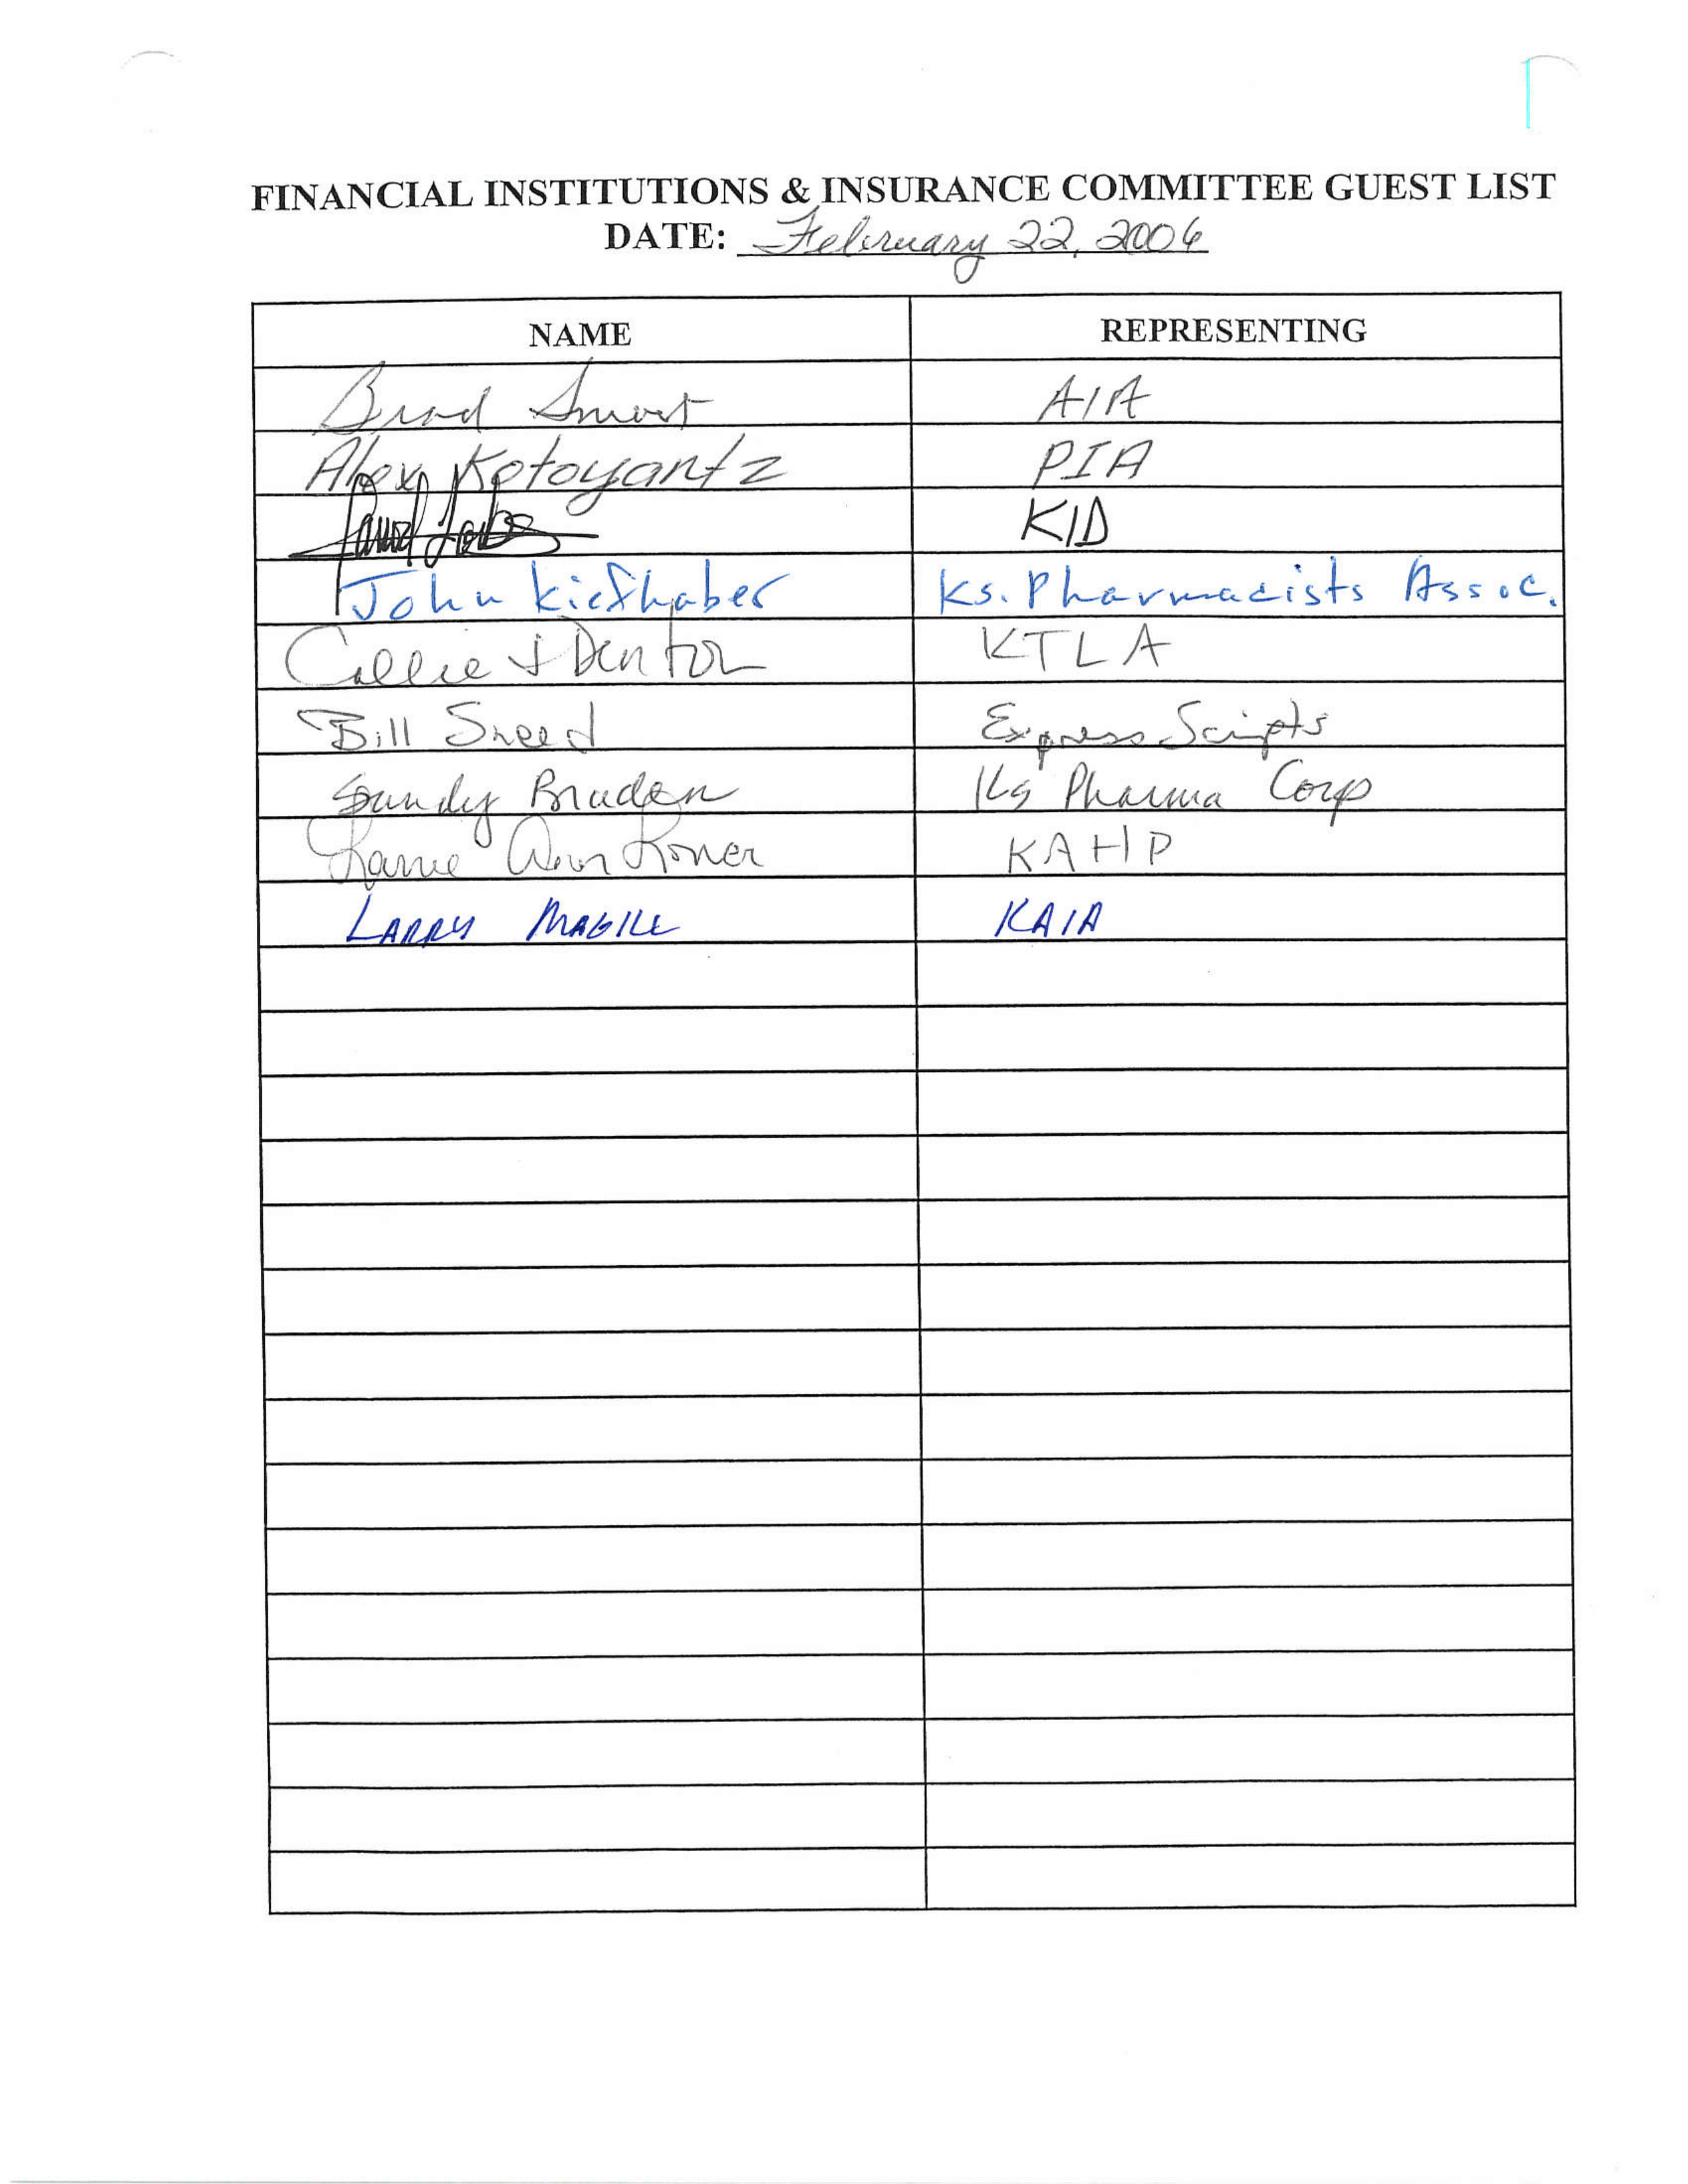 FINANCIAL INSTITUTIONS & INSURANCE COMMITTEE GUEST LIST
DATE: February 22, 2006
NAME REPRESENTING
Brad Smoot AIA
Alex Kotoyantz PIA
KID
John Kiefhaber Ks. Pharmacists Assoc.
Callie J Denton KTLA
Bill Sneed Express Scripts
Sandy Braden Ks Pharma Corp
Ann KAHP
LARRY MAGILL KAIA